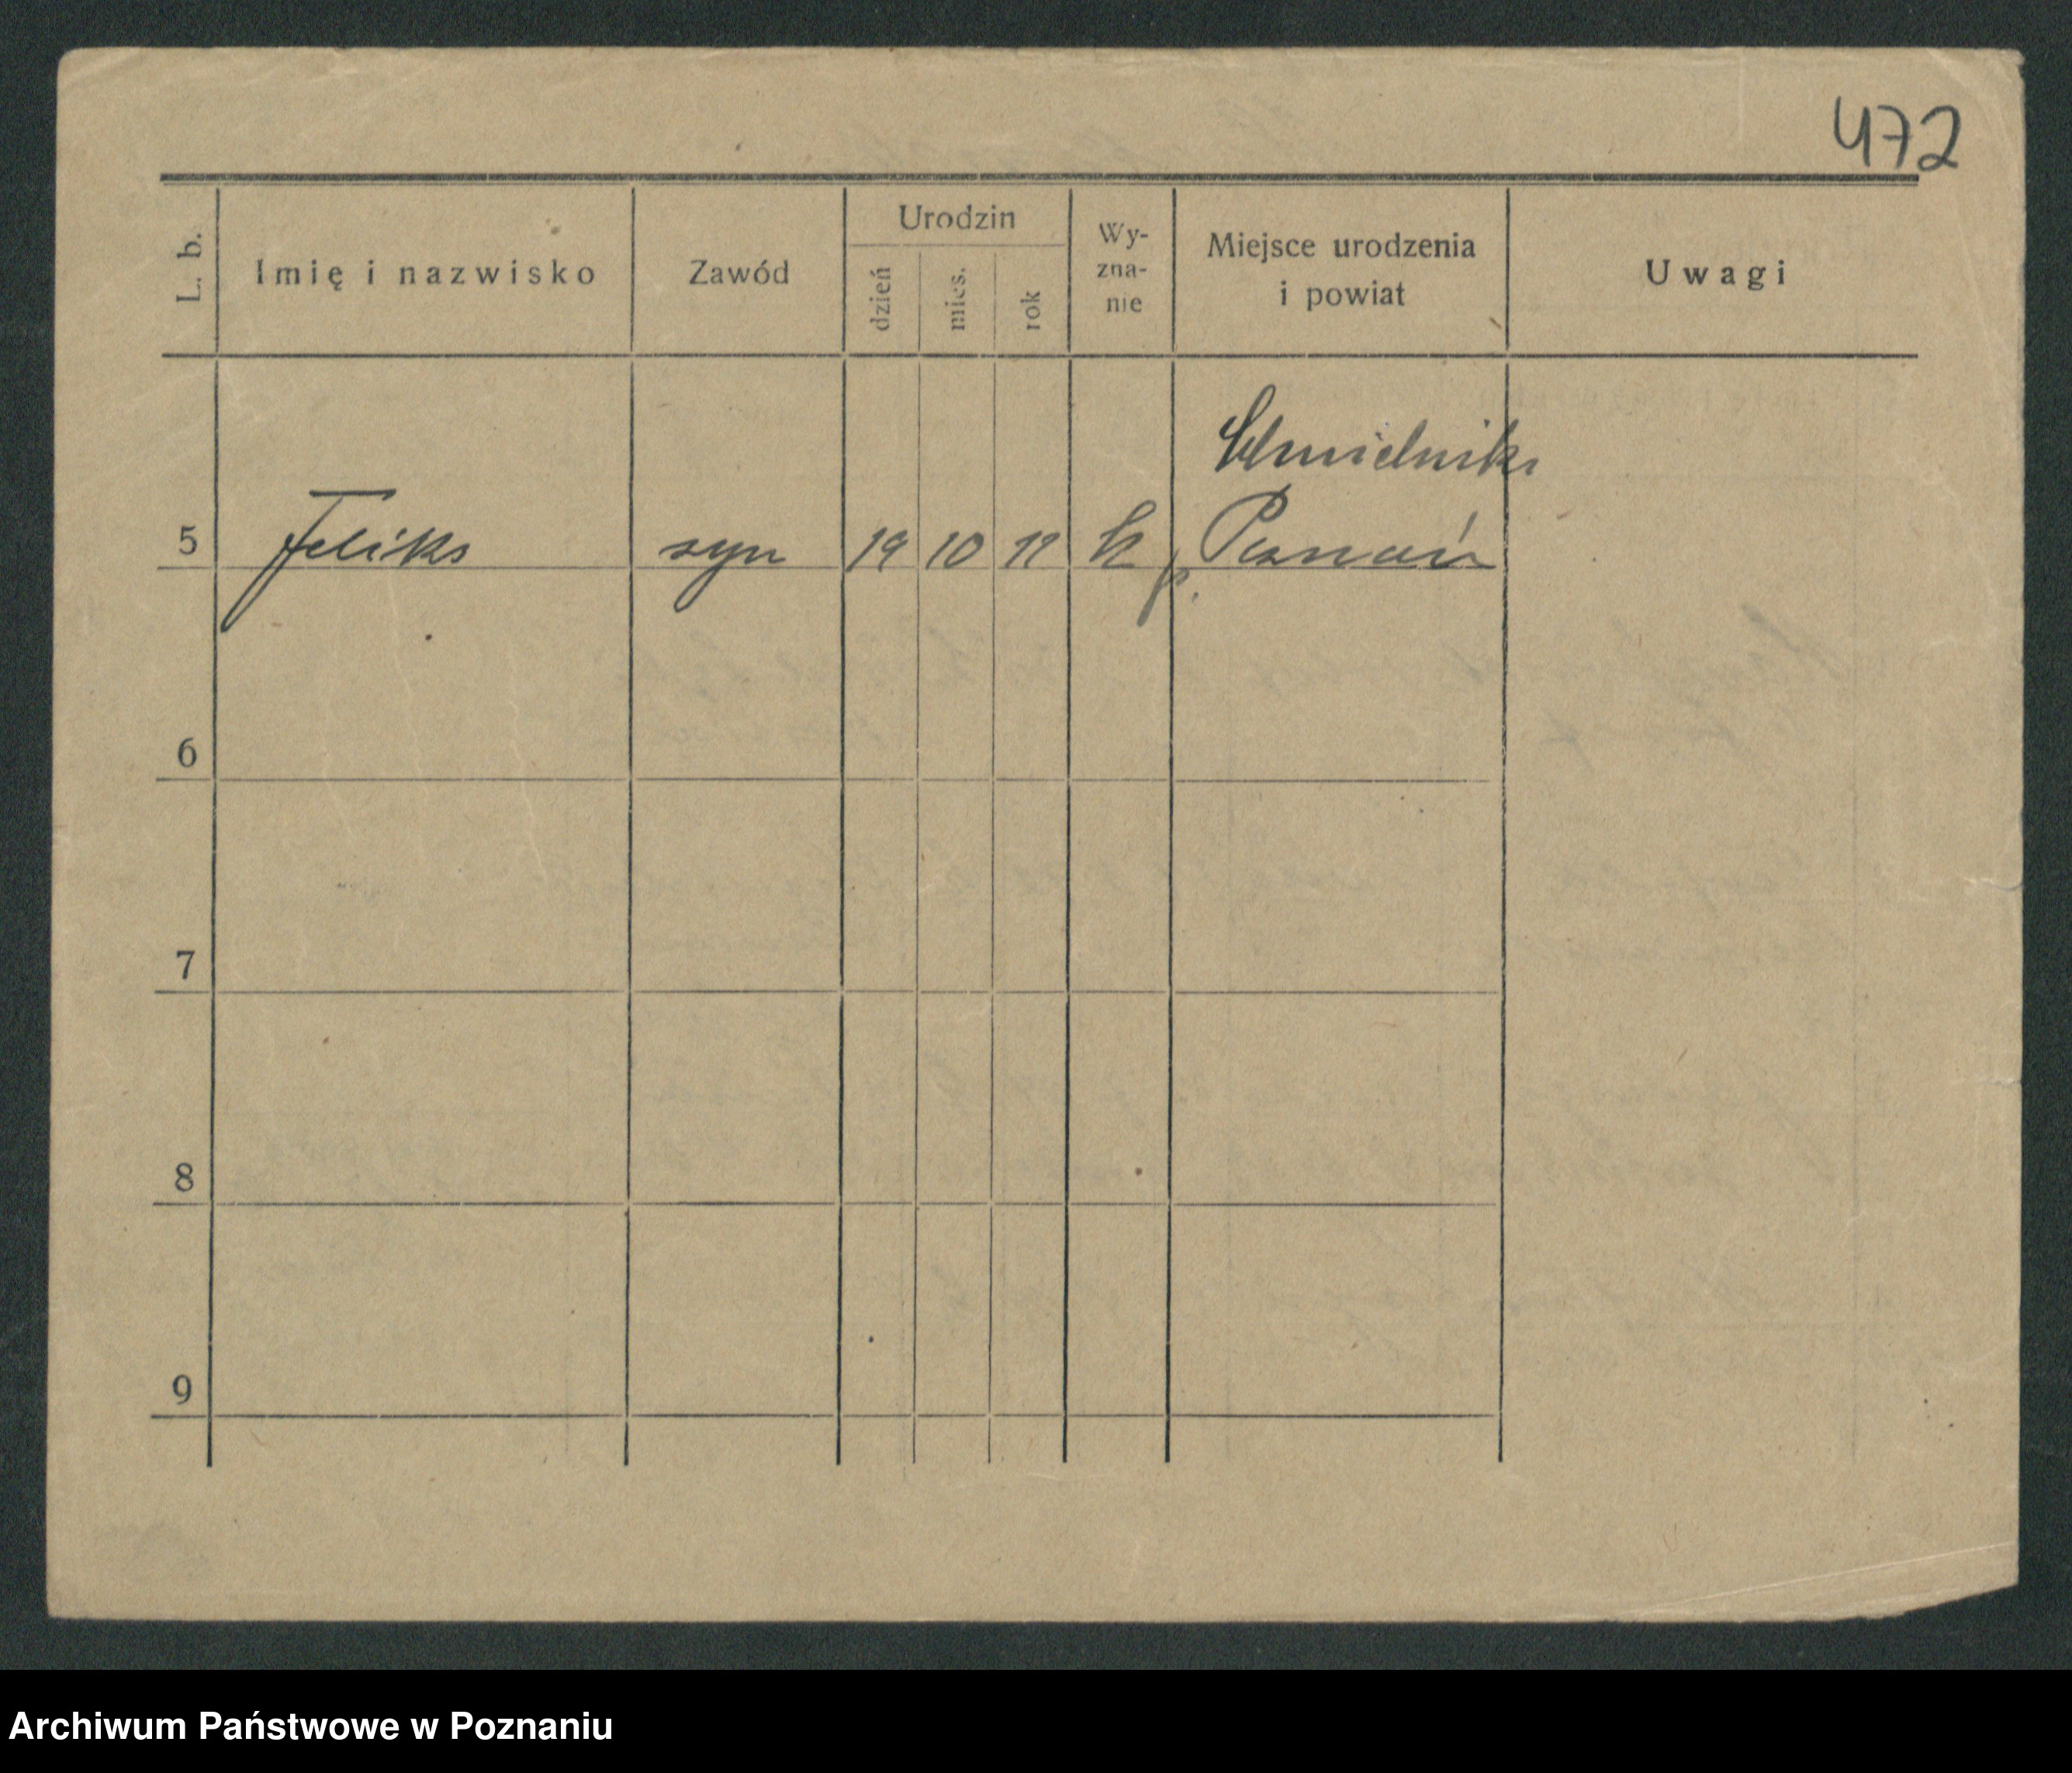 472
L. b.
Imię i nazwisko
Zawód
Urodzin
dzień
mies.
rok
Wy-
zna-
nie
Miejsce urodzenia
i powiat
Uwagi
Chmielniki
5 Feliks syn 19 10 11 k p. Poznań
6
7
8
9
Archiwum Państwowe w Poznaniu